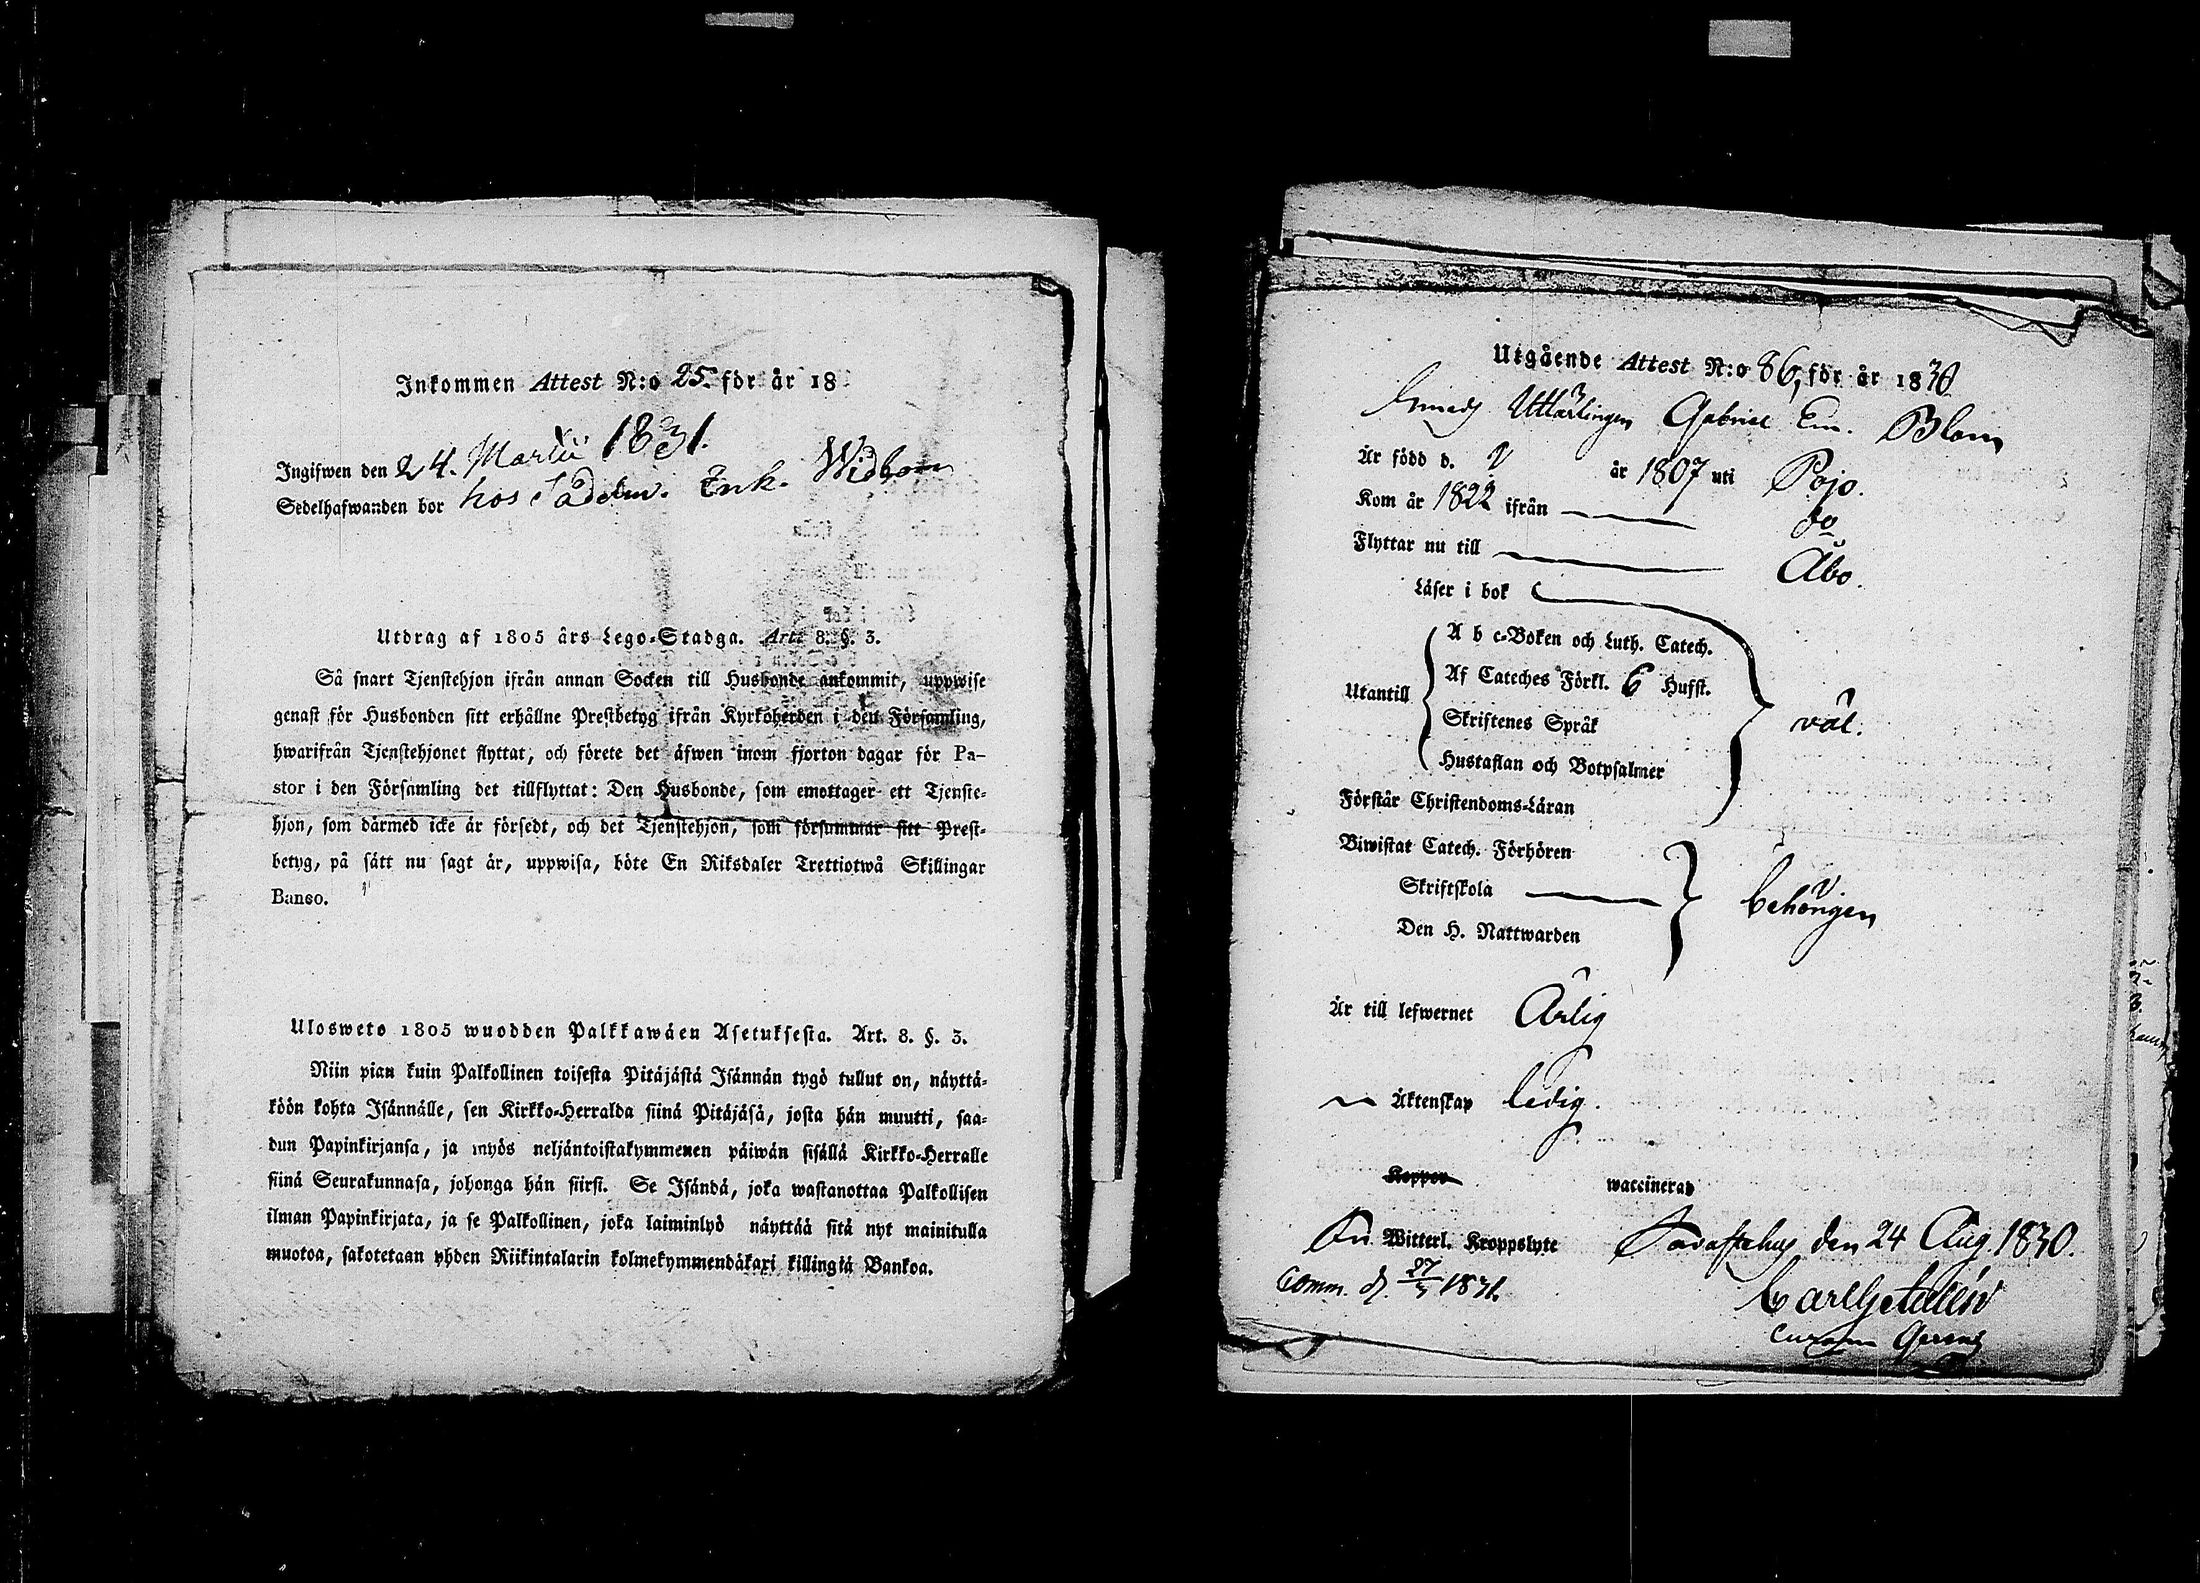 Inkommen Attest N:o 25. för år 18
24. Martii 1831.
Ingifwen den
Sedelhafwanden bor hos Enk. Widbom
Utdrag af 1805 års Lego-Stadga. Art. 8. §. 3.
Så snart Tjenstehjon ifrån annan Socken till Husbonde ankommit, uppwise
genast för Husbonden sitt erhållne Prestbetyg ifrån Kyrkoherden i den Församling,
hwarifrån Tjenstehjonet flyttat, och förete det äfwen inom fjorton dagar för Pa-
stor i den Församling det tillflyttat: Den Husbonde, som emottager ett Tjenste-
hjon, som därmed icke är försedt, och det Tjenstehjon, som försummar sitt Prest-
betyg, på sätt nu sagt är, uppwisa, böte En Riksdaler Trettiotwå Skillingar
Banco.
Ulosweto 1805 wuodden Palkkawäen Asetuksesta. Art. 8. §. 3.
Niin pian kuin Palkollinen toisesta Pitäjästä Isännän tygö tullut on, näyttä-
köön kohta Isännälle, sen Kirkko-Herralda siinä Pitäjäsä, josta hän muutti, saa-
dun Papinkirjansa, ja myös neljäntoistakymmenen päiwän sisällä Kirkko-Herralle
siinä Seurakunnasa, johonga hän siirsi. Se Isändä, joka wastanottaa Palkollisen
ilman Papinkirjata, ja se Palkollinen, joka laiminlyö näyttää sitä nyt mainitulla
muotoa, sakotetaan yhden Riikintalarin kolmekymmendäkaxi killingiä Bankoa.
Utgående Attest N:o 86, för år 1830
Gabriel Em. Blom
Är född d. år 1807 uti Pojo.
Kom år 1822 ifrån do
Flyttar nu till Åbo.
Läser i bok
A b c-Boken och Luth. Catech.
Af Cateches Förkl. 6 Hufst.
Utantill
Skriftenes Språk
väl.
Hustaflan och Botpsalmer
Förstår Christendoms-Läran
Biwistat Catech. Förhören
Skriftskola
behörigen
Den H. Nattwarden
Är till lefwernet Ärlig
Äktenskap ledig.
Koppor waccinerad
Witterl. Kroppslyte Tavastehus den 24 Aug. 1830.
Comm. d. 27/3 1831.